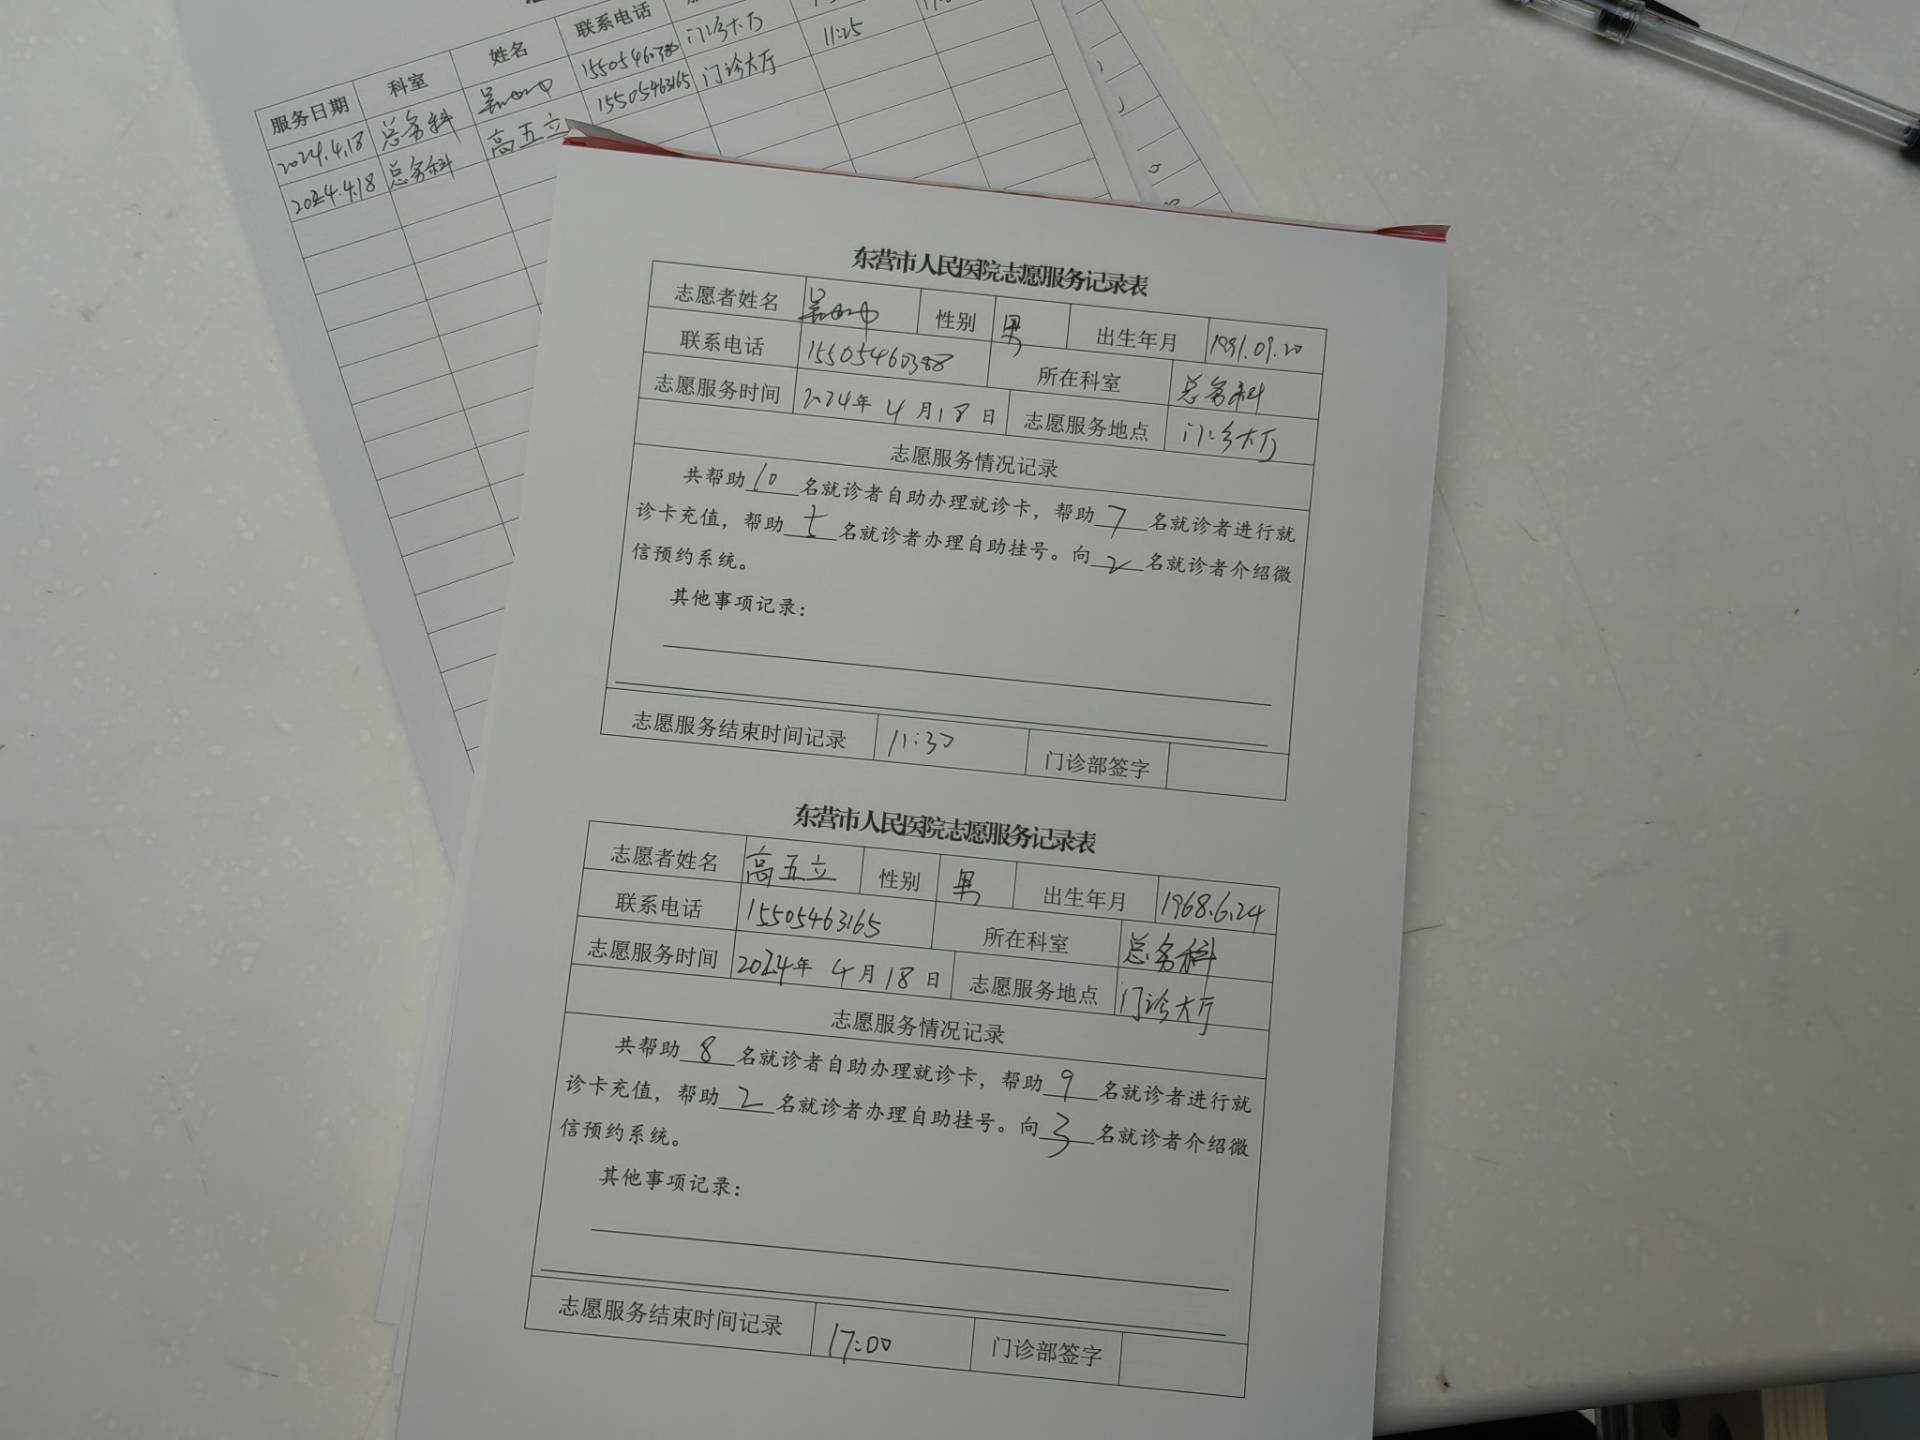 服务日期 科室 姓名 联系电话
2024.4.18 总务科 门诊大厅
2024.4.18 总务科 高五立 15505463165 门诊大厅 11:25
东营市人民医院志愿服务记录表
志愿者姓名 性别 男 出生年月 1991.09.20
联系电话 15505460388 所在科室 总务科
志愿服务时间 2024年 4月18日 志愿服务地点 门诊大厅
志愿服务情况记录
共帮助10名就诊者自助办理就诊卡，帮助7名就诊者进行就
诊卡充值，帮助 名就诊者办理自助挂号。向2名就诊者介绍微
信预约系统。
其他事项记录：
志愿服务结束时间记录 11:30 门诊部签字
东营市人民医院志愿服务记录表
志愿者姓名 高五立 性别 男 出生年月 1968.6.24
联系电话 15505463165 所在科室 总务科
志愿服务时间 2024年 4月18日 志愿服务地点 门诊大厅
志愿服务情况记录
共帮助8名就诊者自助办理就诊卡，帮助9名就诊者进行就
诊卡充值，帮助2名就诊者办理自助挂号。向3名就诊者介绍微
信预约系统。
其他事项记录：
志愿服务结束时间记录 17:00 门诊部签字